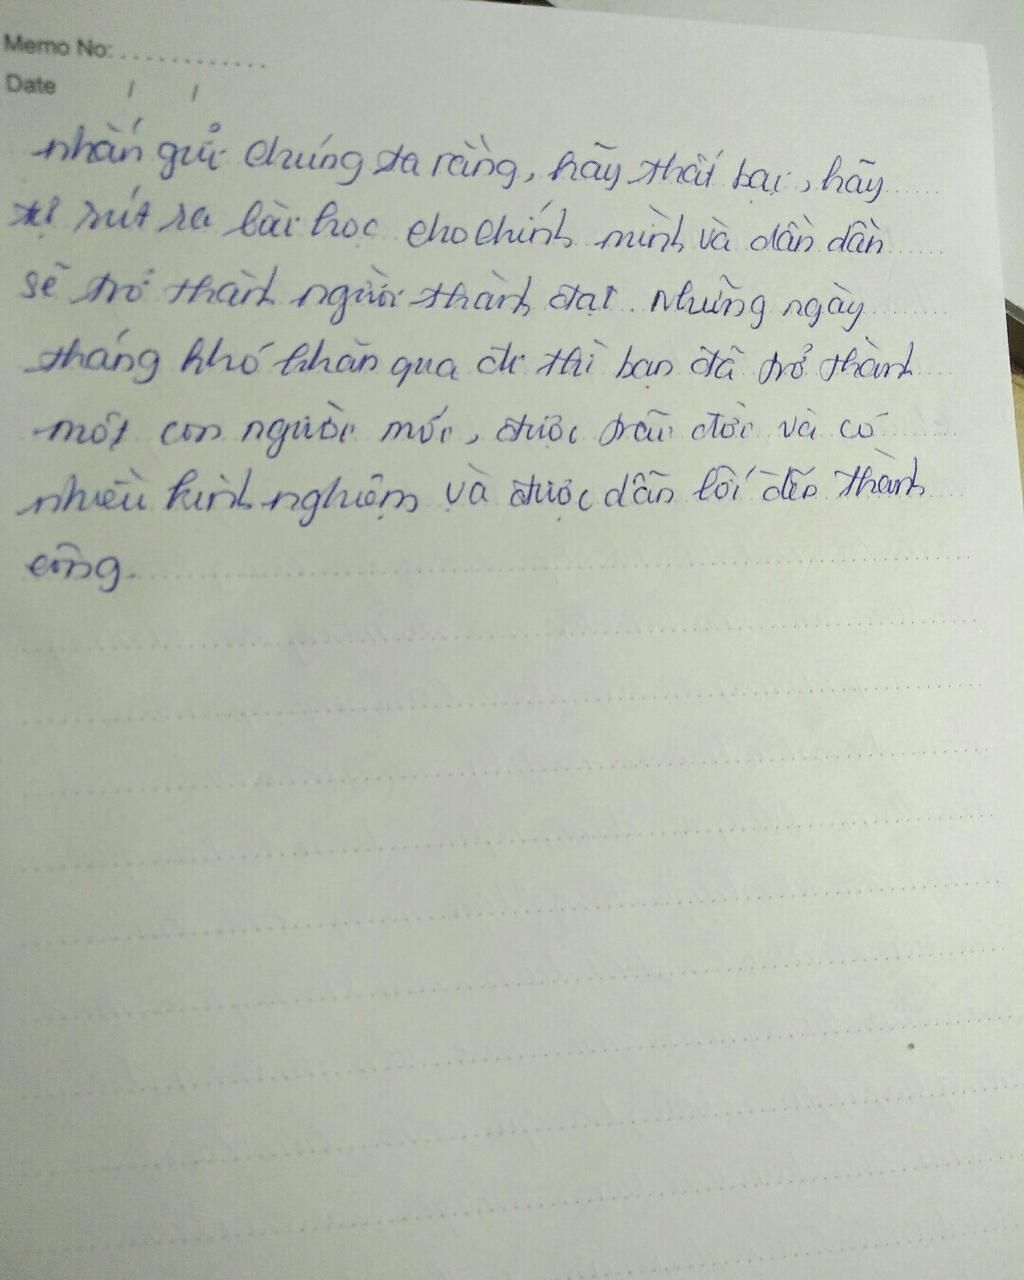 Memo No: .............
Date / /
nhắn gửi chúng ta rằng, hãy thất bại, hãy
tự rút ra bài học cho chính mình và dần dần
sẽ trở thành người thành đạt. Những ngày
tháng khó khăn qua đi thì bạn đã trở thành
một con người mới, được trãi đời và có
nhiều kinh nghiệm và được dẫn lối đến thành
công.